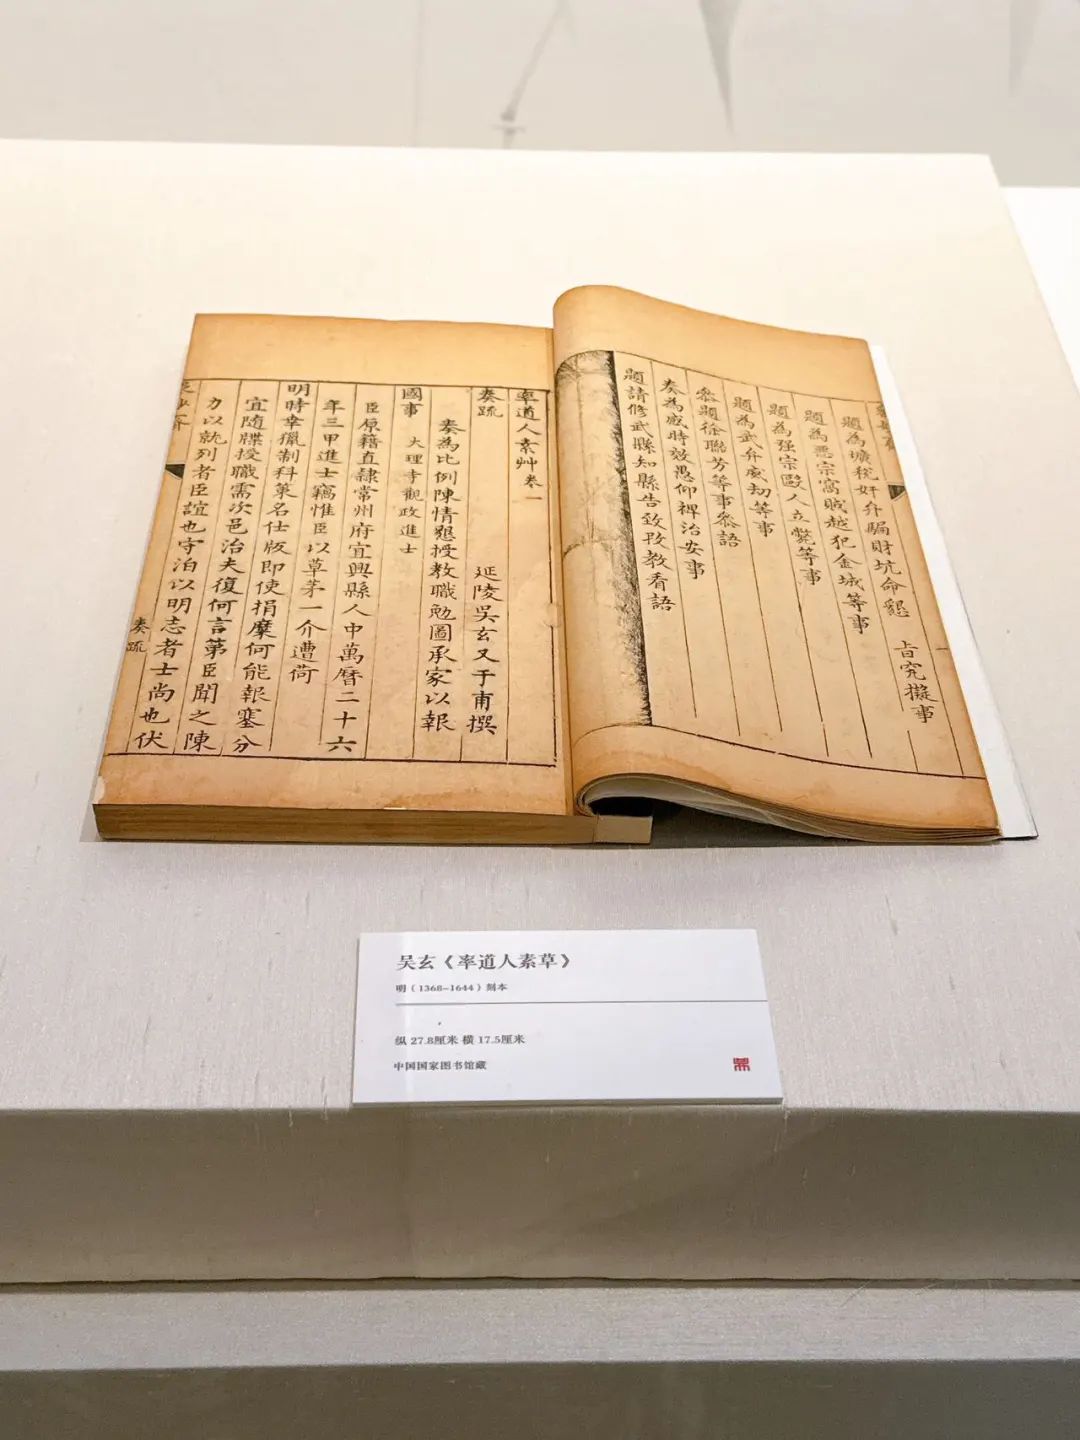 題為壙稅奸弁騙財坑命懇
旨究擬事
題為惡宗窩賊越犯金城等事
題為强宗毆人立斃等事
題為武弁威劫等事
叅題徐聯芳等事叅語
奏為感時效愚仰裨治安事
題請修武縣知縣告致改教看語
率道人素艸卷一
延陵吳玄又于甫撰
奏疏
奏為比例陳情懇授教職勉圖承家以報
國事
大理寺觀政進士
臣原籍直隸常州府宜興縣人中萬曆二十六
年三甲進士竊惟臣以草茅一介遭荷
明時幸獵制科菓名仕版即使捐糜何能報塞分
宜隨牒授職需次邑治夫復何言第臣聞之陳
力以就列者臣誼也守泊以明志者士尚也伏
奏疏
吴玄《率道人素草》
明（1368–1644）刻本
纵 27.8厘米 横 17.5厘米
中国国家图书馆藏